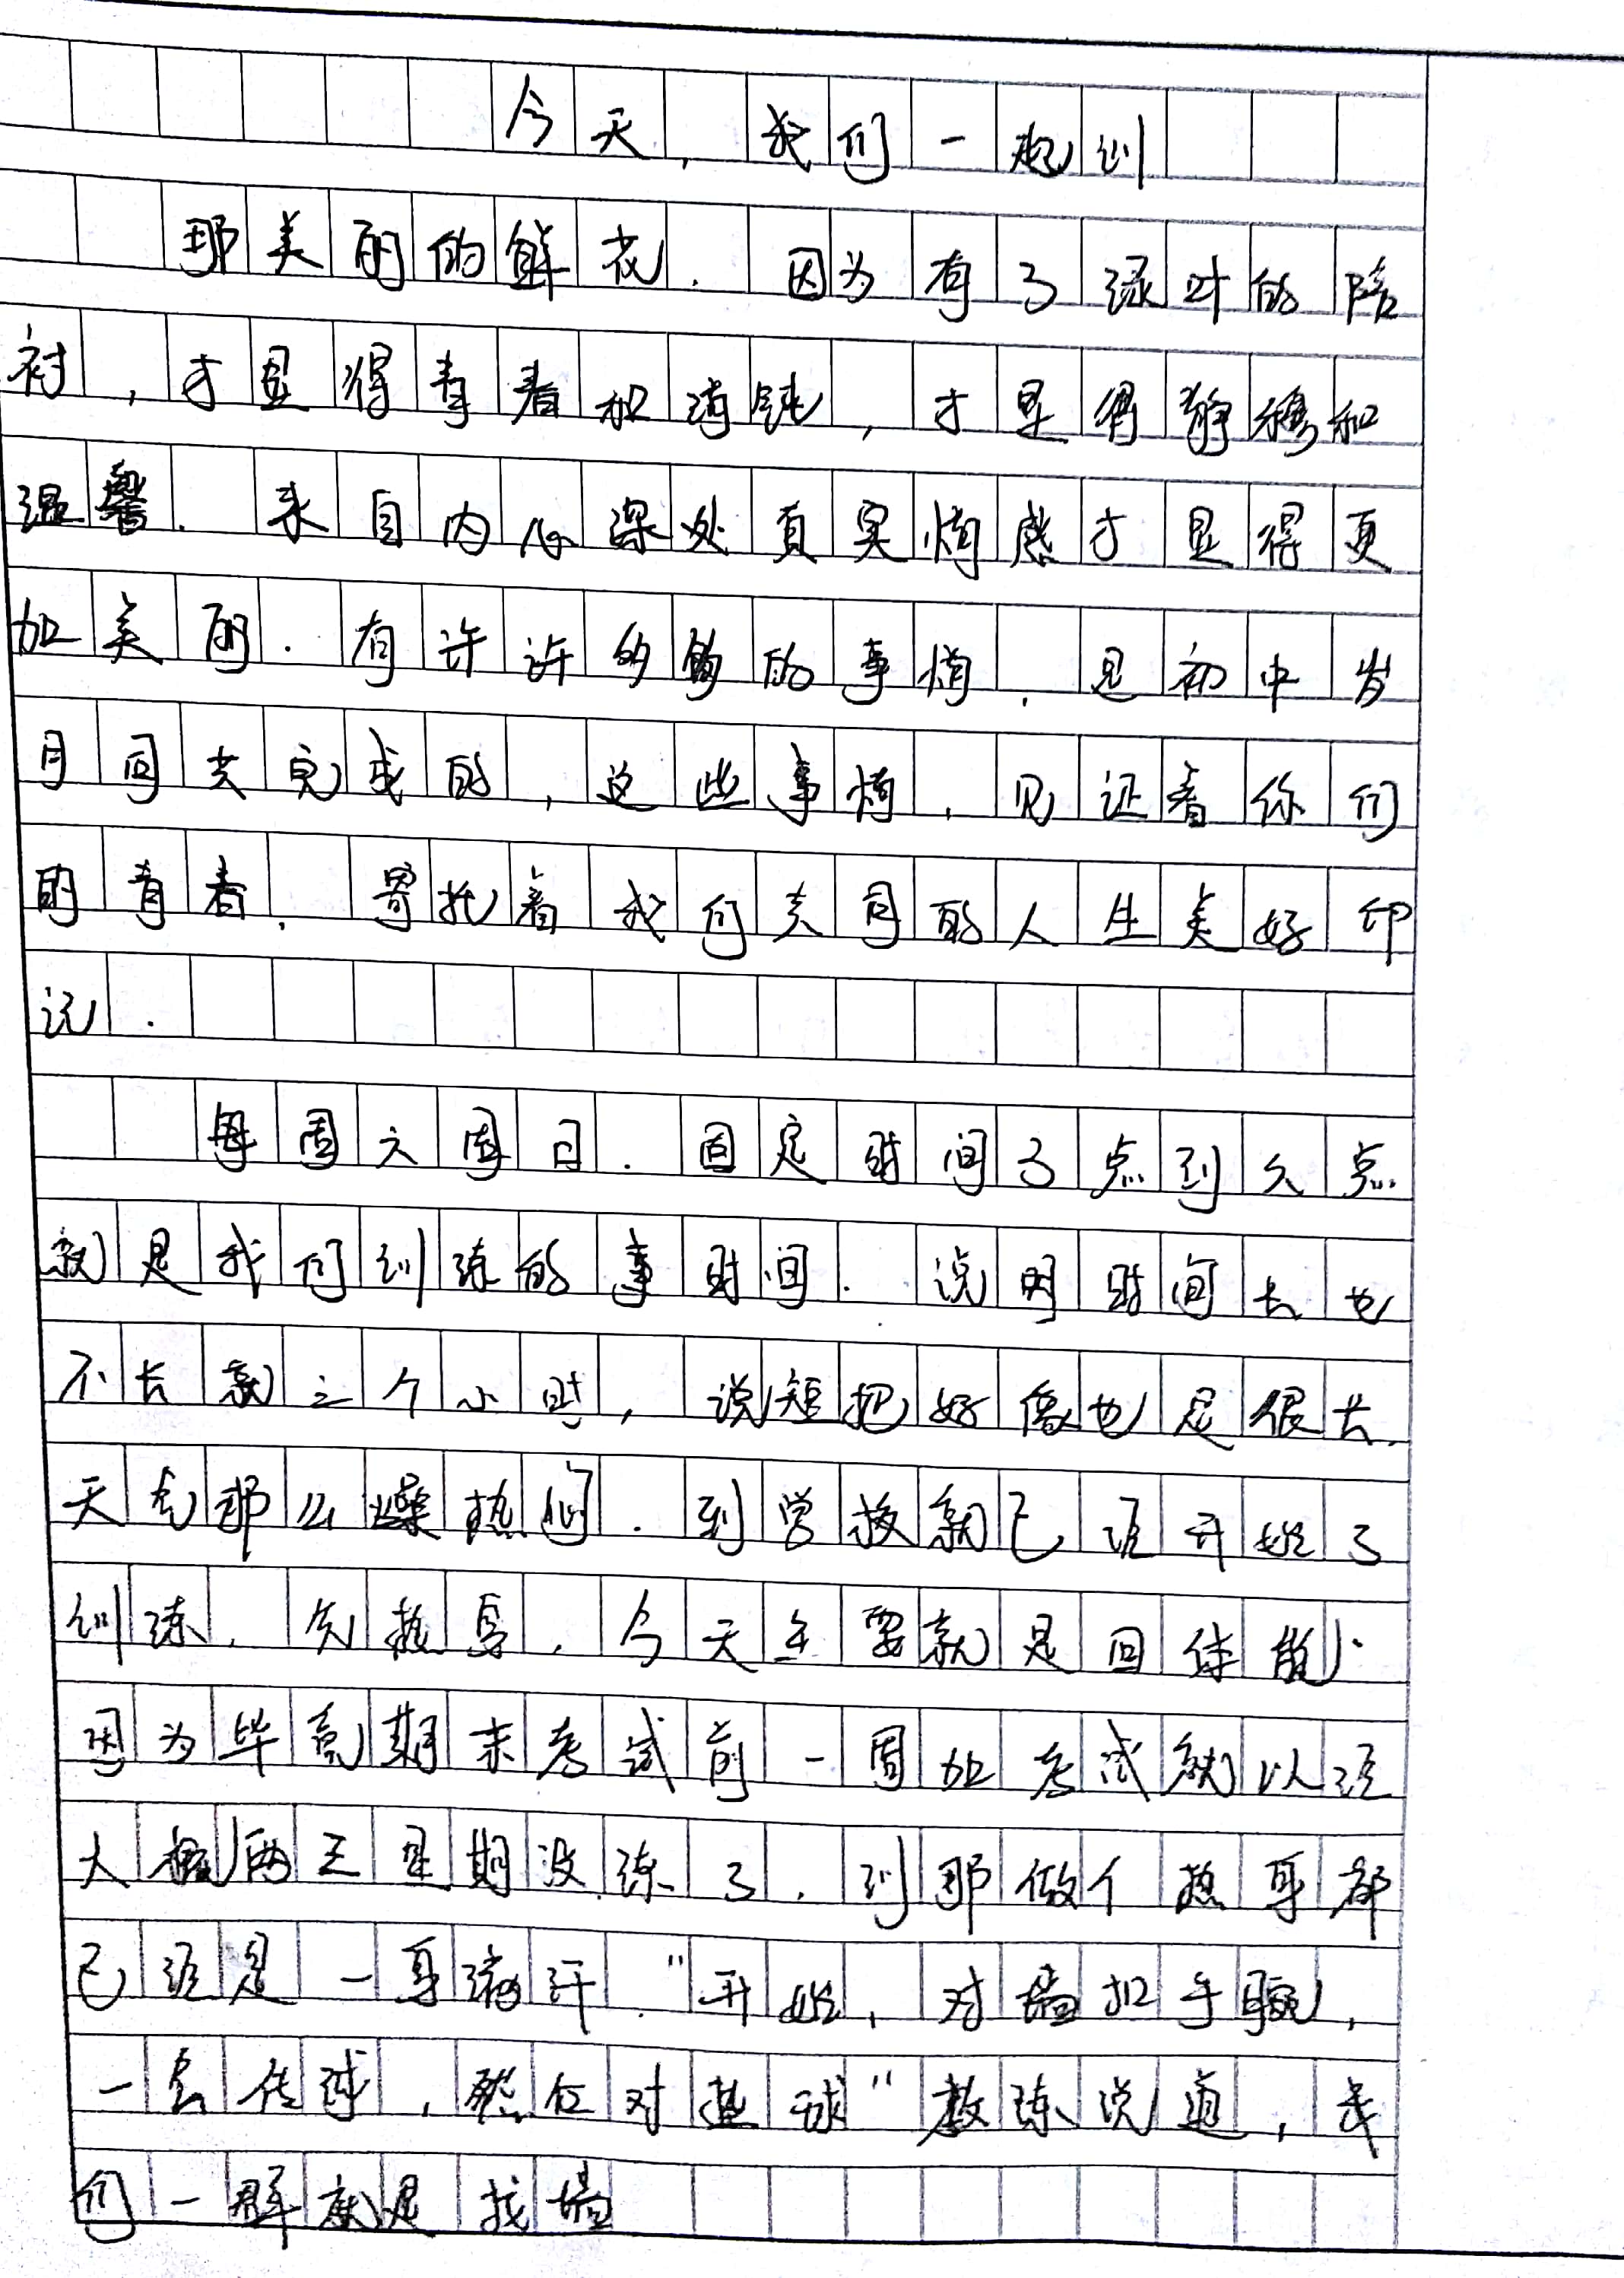 今天，我们一起训
那美丽的鲜花．因为有了绿叶的陪
衬，才显得青春和清纯，才显得静穆和
温馨．来自内心深处真实情感才显得更
加美丽．有许许多多的事情．是初中岁
月同共完成的，这些事情，见证着你们
的青春．寄托着我们共同的人生美好印
记．
每周六周日．固定时间3点到6点
就是我们训练的事时间．说明时间长也
不长就三个小时，说短把好像也是很长．
天气那么燥热们．到学校就已经开始了
训练．先热身，今天主要就是回体能．
因为毕竟期末考试前一周加考试就以经
大概两三星期没练了．到那做个热身都
已经是一身满汗．"开始，对墙扣手腕，
一会传球，然后对垫球"教练说道，我
们一群就是找墙